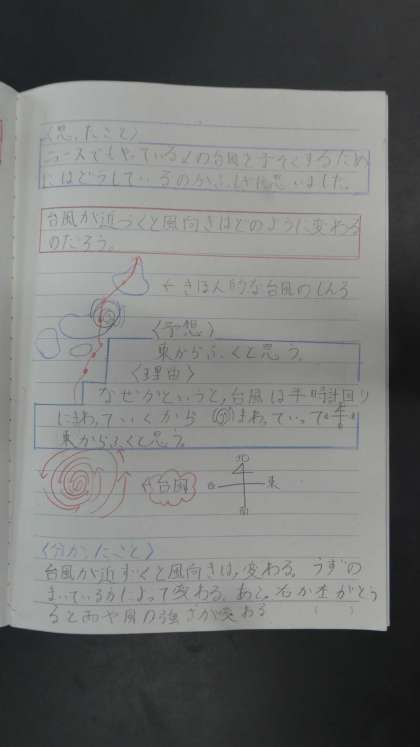 〈思ったこと〉
ニュースでもやっているこの台風を予そくするため
にはどうしているのかふしぎに思いました。
台風が近づくと風向きはどのように変わる
のだろう。
←きほん的な台風のしんろ
〈予想〉
東からふくと思う。
〈理由〉
なぜかというと、台風は半時計回り
にまわっていくから まわっていって
東からふくと思う。
←台風
北
西 東
南
〈分かったこと〉
台風が近ずくと風向きは、変わる。うずの
まいているかによって変わる。あと、右か左がとう
ると雨や風の強さが変わる